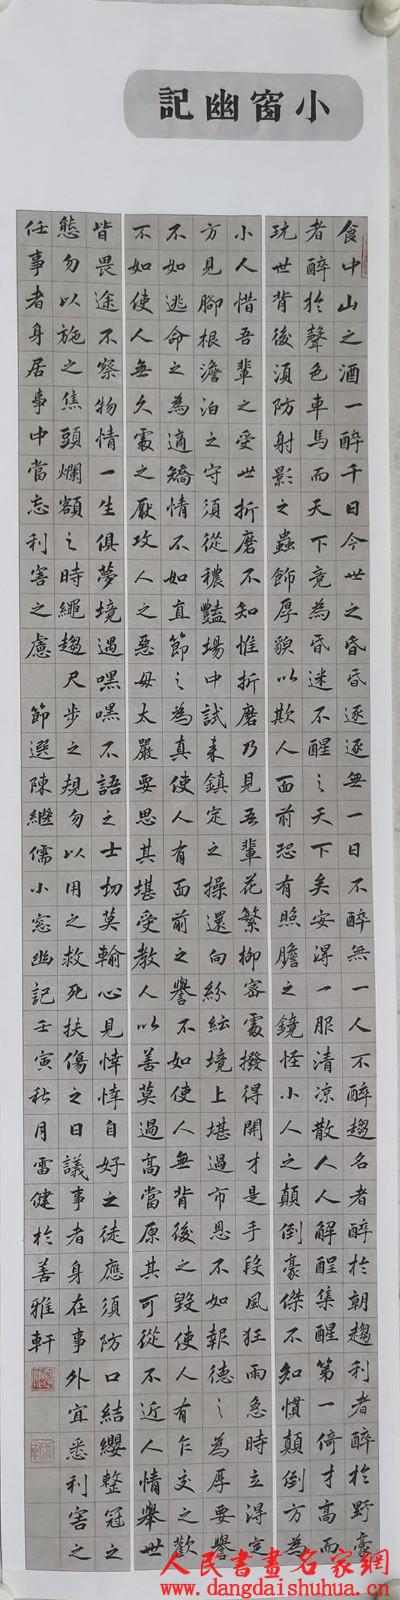 小窗幽記
食中山之酒一醉千日今世之昏昏逐逐無一日不醉無一人不醉趨名者醉於朝趨利者醉於野豪
者醉於聲色車馬而天下竟為昏迷不醒之天下矣安得一服清凉散人人解酲集醒第一倚才高而
玩世背後須防射影之蟲飾厚貌以欺人面前恐有照膽之鏡怪小人之顛倒豪傑不知慣顛倒方為
小人惜吾輩之受世折磨不知惟折磨乃見吾輩花繁柳密處撥得開才是手段風狂雨急時立得定
方見腳根澹泊之守須從穠豔場中試來鎮定之操還向紛紜境上堪過市恩不如報德之為厚要譽
不如逃命之為適矯情不如直節之為真使人有面前之譽不如使人無背後之毀使人有乍交之歡
不如使人無久處之厭攻人之惡毋太嚴要思其堪受教人以善莫過高當原其可從不近人情舉世
皆畏途不察物情一生俱夢境遇嘿嘿不語之士切莫輸心見悻悻自好之徒應須防口結纓整冠之
態勿以施之焦頭爛額之時繩趨尺步之規勿以用之救死扶傷之日議事者身在事外宜悉利害之
任事者身居事中當忘利害之慮 節選陳繼儒小窓幽記壬寅秋月雷健於善雅軒
人民書畫名家網
www.dangdaishuhua.cn